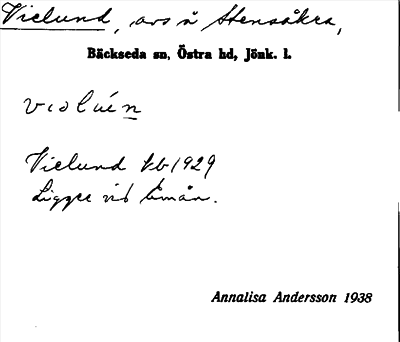 Vielund, avs å Stensåkra,
Bäckseda sn, Östra hd, Jönk. l.
Vielund kb 1929
Ligger vid Emån.
Annalisa Andersson 1938